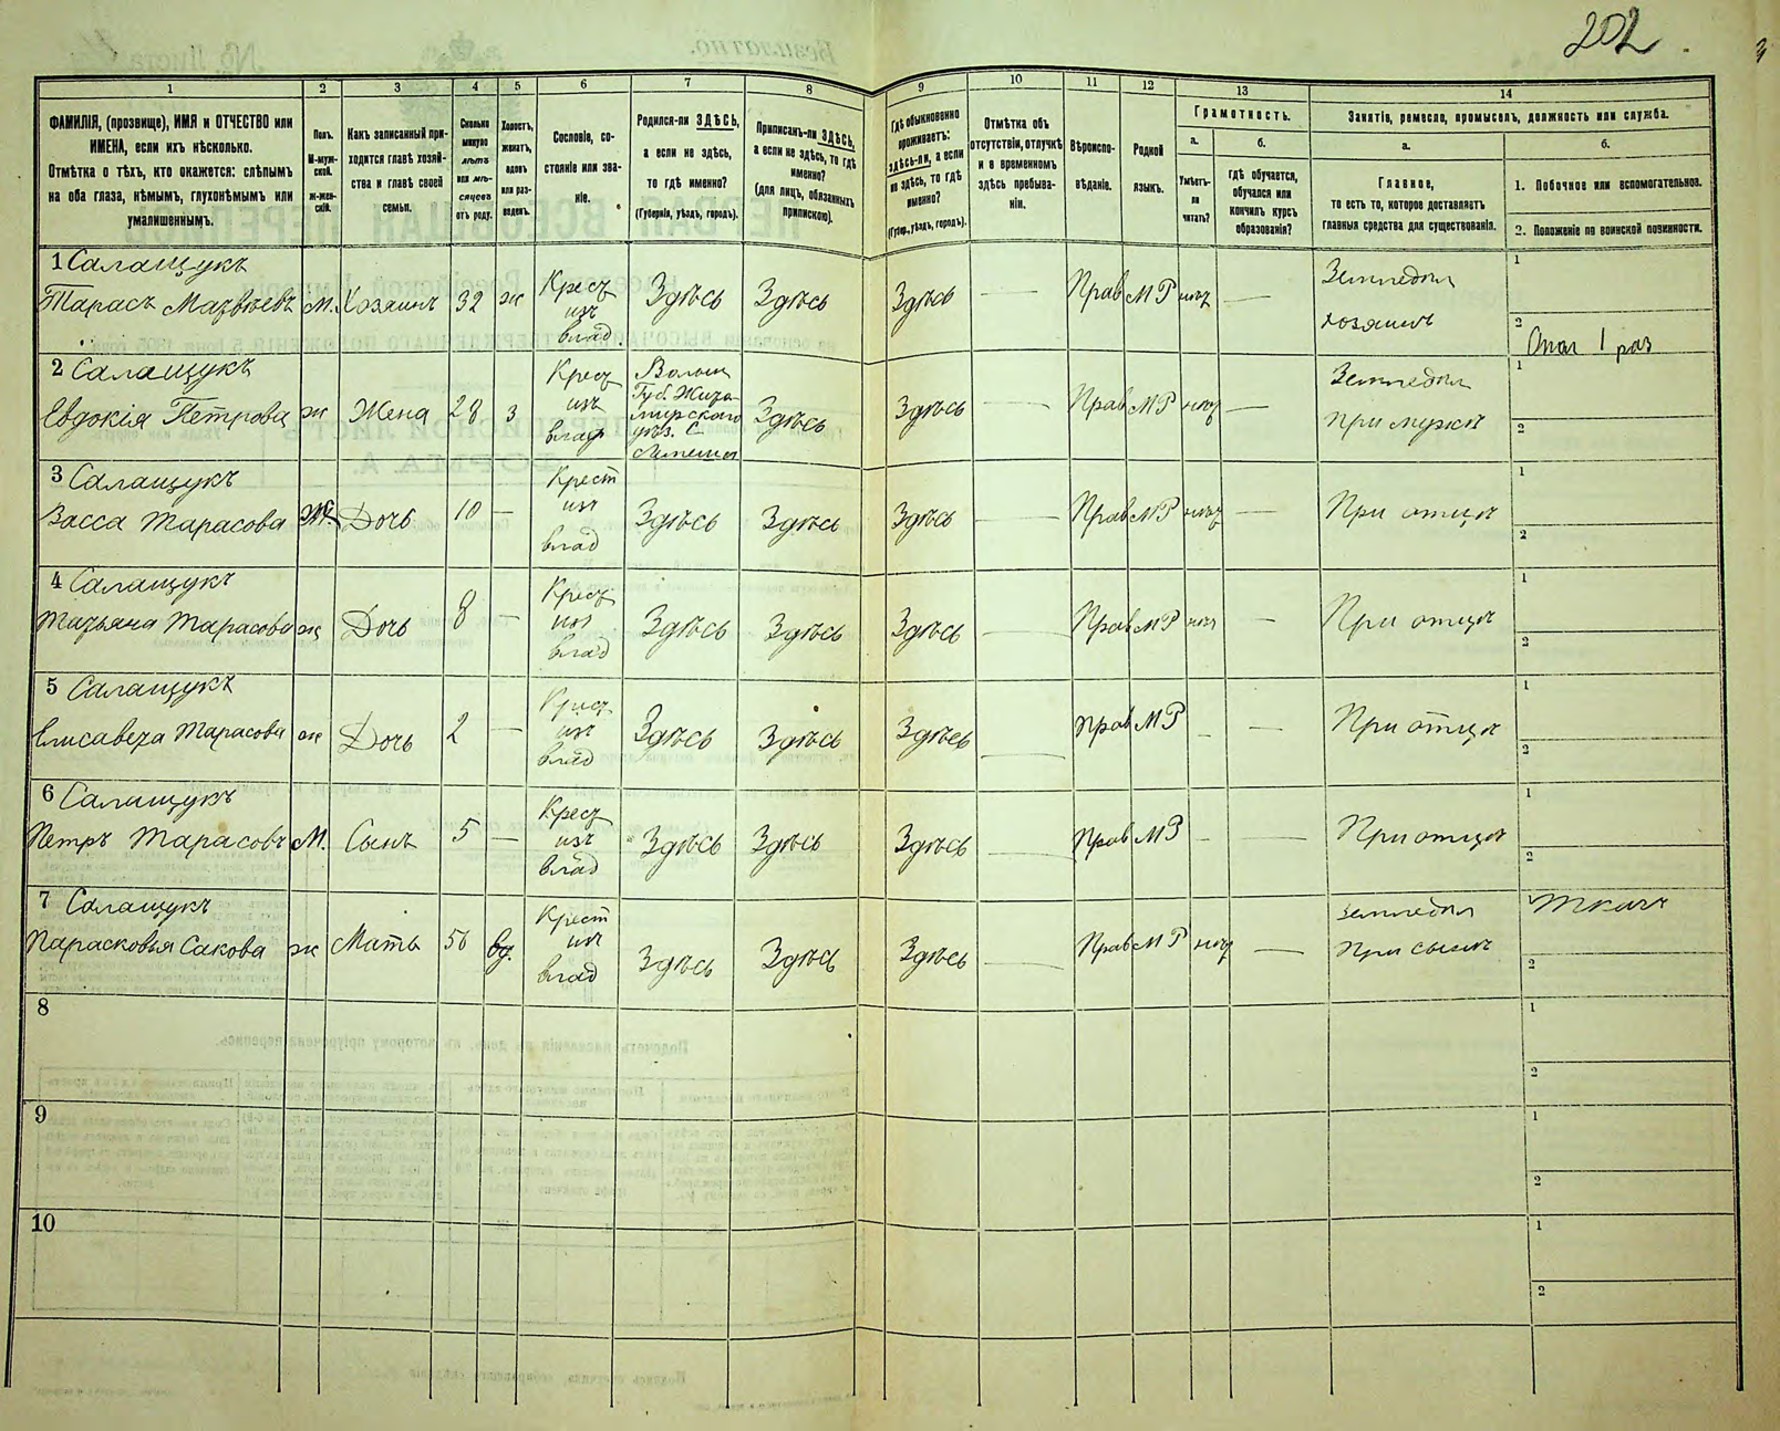 202
1 2 3 4 5 6 7 8 9 10 11 12 13 14
ФАМИЛІЯ, (прозвище), ИМЯ и ОТЧЕСТВО или
ИМЕНА, если ихъ нѣсколько.
Отмѣтка о тѣхъ, кто окажется: слѣпымъ
на оба глаза, нѣмымъ, глухонѣмымъ или
умалишеннымъ.
Полъ.
М-муж-
ской.
ж-жен-
скій.
Какъ записанный при-
ходится главѣ хозяй-
ства и главѣ своей
семьи.
Сколько
минуло
лѣтъ
или мѣ-
сяцевъ
отъ роду.
Холостъ,
женатъ,
вдовъ
или раз-
веденъ.
Сословіе, со-
стояніе или зва-
ніе.
Родился-ли ЗДѢСЬ,
а если не здѣсь,
то гдѣ именно?
(Губернія, уѣздъ, городъ).
Приписанъ-ли ЗДѢСЬ,
а если не здѣсь, то гдѣ
именно?
(для лицъ, обязанныхъ
припискою).
Гдѣ обыкновенно
проживаетъ:
здѣсь-ли, а если
не здѣсь, то гдѣ
именно?
(Губер., уѣздъ, городъ).
Отмѣтка объ
отсутствіи, отлучкѣ
и о временномъ
здѣсь пребыва-
ніи.
Вѣроиспо-
вѣданіе.
Родной
языкъ.
Грамотность.
а.
Умѣетъ-
ли
читать?
б.
гдѣ обучается,
обучался или
кончилъ курсъ
образованія?
Занятіе, ремесло, промыселъ, должность или служба.
а.
Главное,
то есть то, которое доставляетъ
главныя средства для существованія.
б.
1. Побочное или вспомогательное.
2. Положеніе по воинской повинности.
1 Салащукъ
Тарасъ Матвѣевъ М. Хозяинъ 32 ж Крест изъ влад. Здѣсь Здѣсь Здѣсь — Прав МР нѣт — Земледѣл хозяинъ 1 2 Опол 1 раз
2 Салащукъ
Евдокія Петрова ж Жена 28 з Крест изъ влад Волын Губ. Жито-мирского уѣз. С. Здѣсь Здѣсь — Прав МР нѣт — Земледѣл при мужѣ 1 2
3 Салащукъ
Васса Тарасова ж. Дочь 10 — Крест изъ влад Здѣсь Здѣсь Здѣсь — Прав МР нѣт — При отцѣ 1 2
4 Салащукъ
Татьяна Тарасова ж Дочь 8 — Крест изъ влад Здѣсь Здѣсь Здѣсь — Прав МР нѣт — При отцѣ 1 2
5 Салащукъ
Елисавета Тарасова ж Дочь 2 — Крест изъ влад Здѣсь Здѣсь Здѣсь — Прав МР — — При отцѣ 1 2
6 Салащукъ
Петръ Тарасовъ М. Сынъ 5 — Крест изъ влад Здѣсь Здѣсь Здѣсь — Прав МР — — При отцѣ 1 2
7 Салащукъ
Парасковья Сакова ж Мать 56 вд. Крест изъ влад Здѣсь Здѣсь Здѣсь — Прав МР нѣт — Земледѣл при сынѣ 1 Ткачъ 2
8 1 2
9 1 2
10 1 2